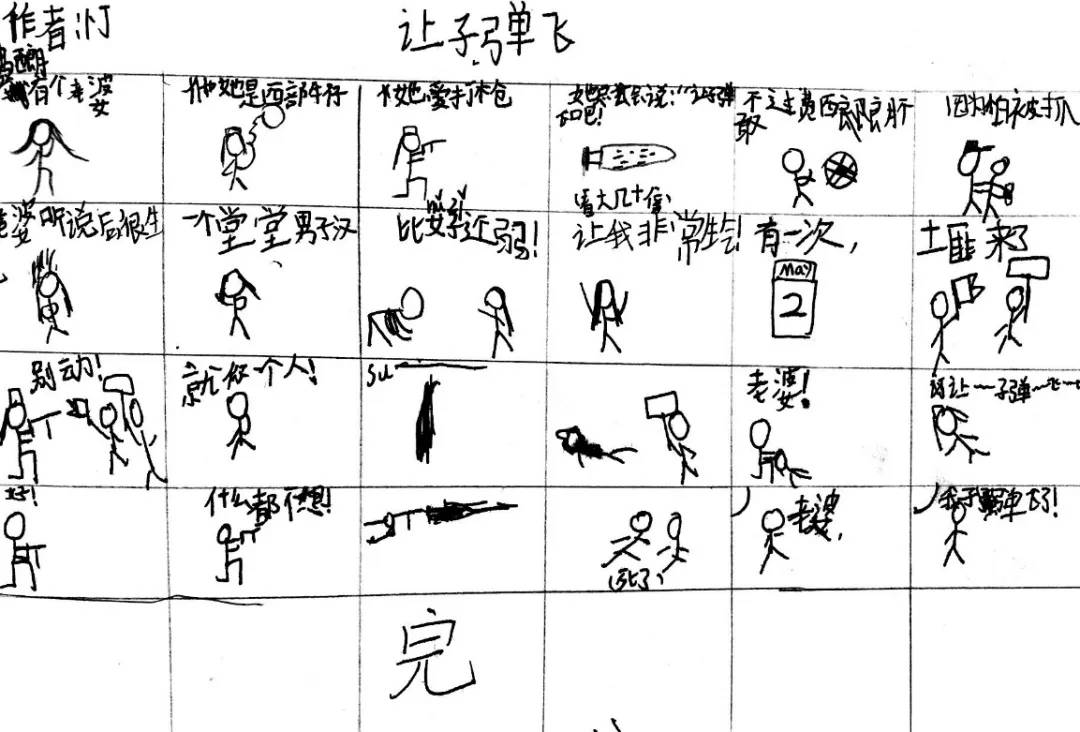 作者:灯
让子弹飞
有个老婆
她是西部牛仔
她爱打枪
说:"让子弹
飞吧!
(看大几十倍)
不
敢
因为怕被抓
老婆听说后很生
一个堂堂男子汉
比女子还弱!
让我非常生气!
有一次,
May
2
土匪来了
别动!
就你一个人!
su
老婆!
让~~子弹~飞~
好!
什么都不想!
(死了)
老婆,
子弹飞了!
完